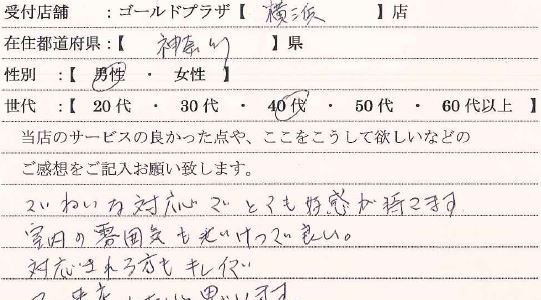 受付店舗 :ゴールドプラザ【 横浜 】店
在住都道府県:【 神奈川 】県
性別 :【 男性 ・ 女性 】
世代 :【 20 代 ・ 30 代 ・ 40 代 ・ 50 代 ・ 60 代以上 】
当店のサービスの良かった点や、ここをこうして欲しいなどの
ご感想をご記入お願い致します。
ていねいな対応でとても好感が持てます
室内の雰囲気も良い。
対応される方もキレイで
思います